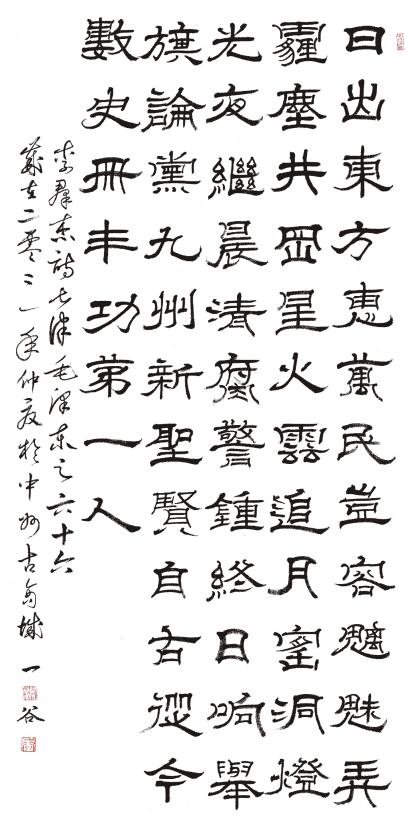 日出東方惠萬民豈容魑魅弄
霾塵井岡星火雲追月窰洞燈
光夜繼晨清腐警鍾終日响舉
旗論黨九州新聖賢自古從今
數史冊丰功第一人
李羣東詩七律毛澤東之六十六
歲在二零二一年仲夏於中州古禹城 一谷